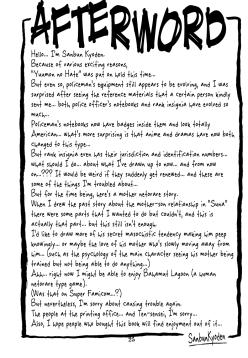 AFTERWORD
Hello... I'm Sanbun Kyoden.
Because of various exciting reasons,
"Yuamon no Hate" was put on hold this time...
But even so, policeman's equipment still appears to be evolving, and I was
surprised after seeing the reference materials that a certain person kindly
sent me... both police officer's notebooks and rank insignia have evolved so
much...
Policeman's notebooks now have badges inside them and look totally
American... what's more surprising is that anime and dramas have now both
changed to this type...
But rank insignia even has their jurisdiction and identification numbers...
what should I do... about what I've drawn up to now... and from now
on...??? It would be weird if they suddenly get renewed... and these are
some of the things I'm troubled about...
But for the time being, here's a mother netorare story.
When I drew the past story about the mother-son relationship in "Suna"
there were some parts that I wanted to do but couldn't, and this is
actually that part... but this still isn't enough...
I'd like to draw more of his secret masochistic tendency making him peep
knowingly... or maybe the love of his mother who's slowly moving away from
him... (such as the psychology of the main character seeing his mother being
trained but not being able to do anything...)
Ahh... right now I might be able to enjoy Bahamut Lagoon (a human
netorare type game).
(Was that on Super Famicom...?)
But nevertheless, I'm sorry about causing trouble again.
The people at the printing office... and Ten-sensei, I'm sorry...
Also, I hope people who bought this book will find enjoyment out of it...
SanbunKyoden